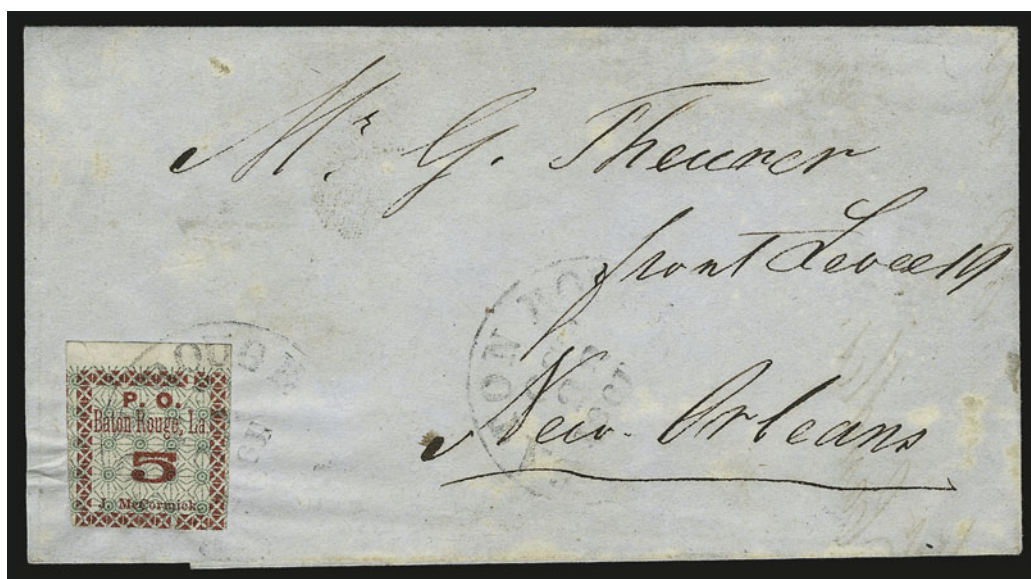 Mr. G. Theurer
front Levee 19
New Orleans
P. O.
Baton Rouge, La.
5
J. McCormick.